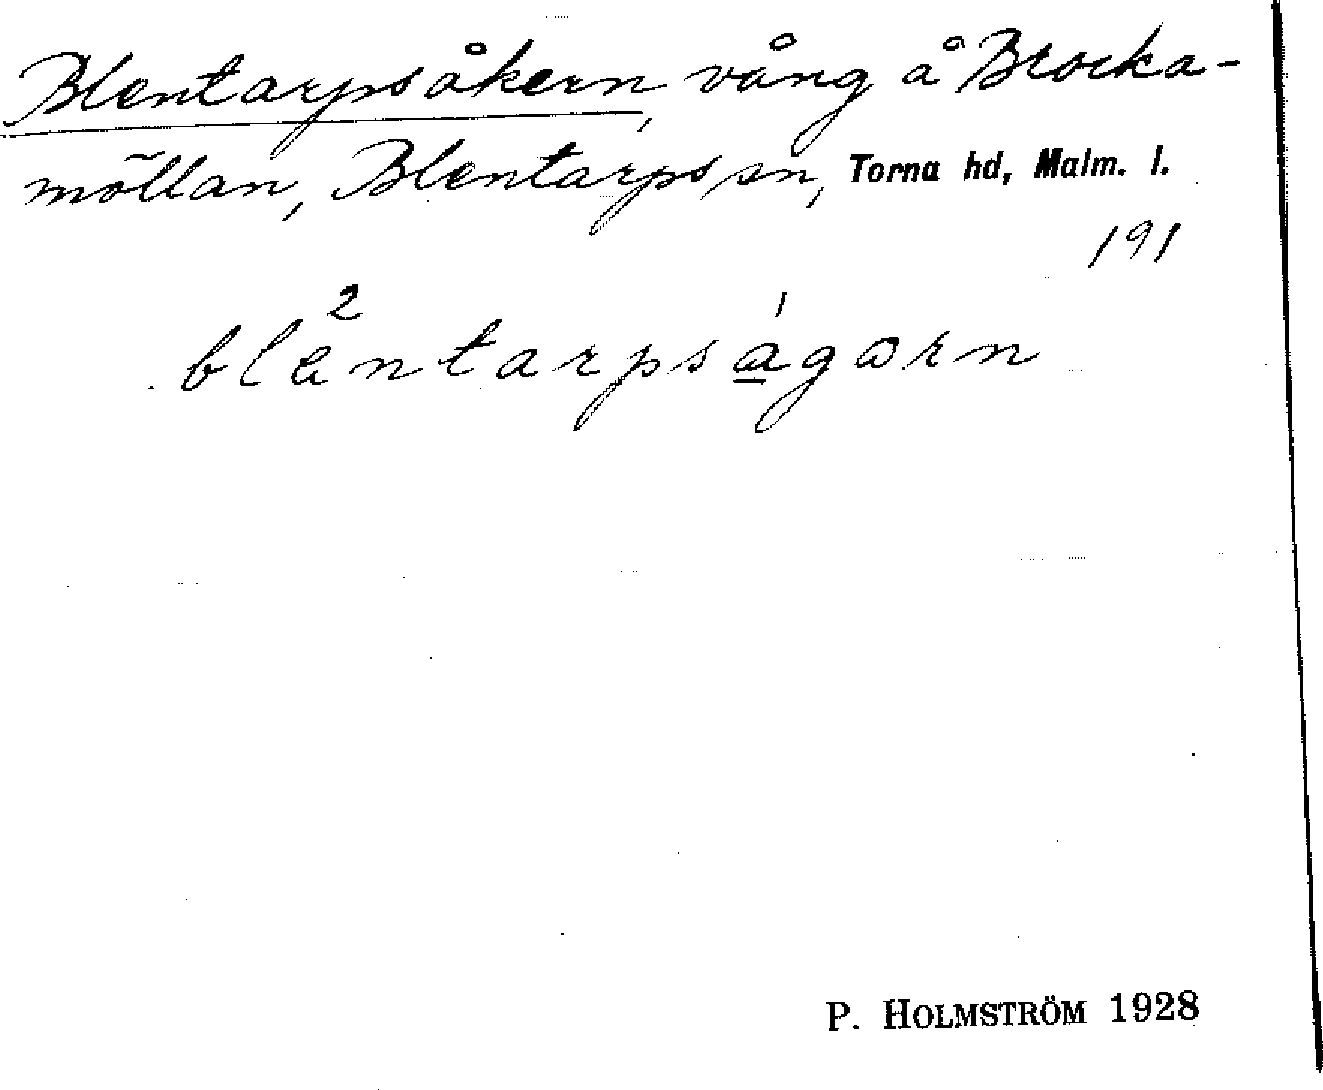 Blentarpsåkern, vång å Brocka-
möllan, Blentarps sn, Torna hd, Malm. l.
191
2 1
blentarpsågorn
P. HOLMSTRÖM 1928